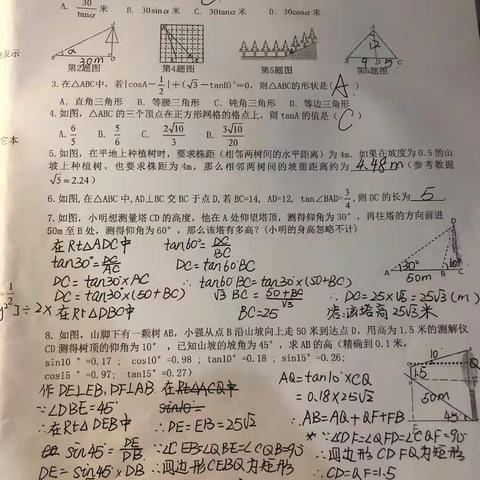 A. 30/tanα 米 B. 30sinα 米 C. 30tanα 米 D. 30cosα 米
表示
α
30m
12
9
5
B
D
C
第2题图 第4题图 第5题图 第6题图
3.在△ABC中，若|cosA-1/2|+(√3-tanB)²=0，则△ABC的形状是( A )
A. 直角三角形 B. 等腰三角形 C. 钝角三角形 D. 等边三角形
4.如图，△ABC的三个顶点在正方形网格的格点上，则tanA的值是( C )
它本
A. 6/5 B. 5/6 C. 2√10/3 D. 3√10/20
5.如图，在平地上种植树时，要求株距（相邻两树间的水平距离）为4m. 如果在坡度为0.5的山
坡上种植树，也要求株距为4m，那么相邻两树间的坡面距离约为 4.48m （参考数据
√5≈2.24）
6.如图，在△ABC中，AD⊥BC交BC于点D,若BC=14, AD=12, tan∠BAD=3/4，则DC的长为 5 .
7.如图，小明想测量塔CD的高度，他在A处仰望塔顶，测得仰角为30°，再往塔的方向前进
50m至B处，测得仰角为60°，那么该塔有多高？（小明的身高忽略不计）
在Rt△ADC中 tan60°=DC/BC
tan30°=DC/AC DC=tan60°BC
DC=tan30°×AC ∴tan60°BC=tan30°×(50+BC)
A
130°
B
60°
C
D
50m
DC=tan30°×(50+BC) √3 BC=50+BC/√3 ∴DC=25×√3=25√3(m)
÷2× 在Rt△DBC中 BC=25 答:该塔高25√3米
8. 如图，山脚下有一颗树AB，小强从点B沿山坡向上走50米到达点D，用高为1.5米的测解仪
CD测得树顶的仰角为10°，已知山坡的坡角为45°，求AB的高（精确到0.1米,
sin10°=0.17； cos10°=0.98；tan10°=0.18；sin15°=0.26；
cos15°=0.97；tan15°=0.27）
作DE⊥EB,DF⊥AB. 在Rt△ACQ中 AQ=tan10°×CQ
∵∠DBE=45° =0.18×25√2
∴在Rt△DEB中 ∴DE=EB=25√2 ∴AB=AQ+QF+FB
sin45°=DE/DB ∵∠CEB=∠QBE=∠CQB=90° ∵∠CDF=∠QFD=∠CQF=90°
DE=sin45°×DB ∴四边形CEBQ为矩形 ∴四边形CDFQ为矩形
∴CD=QF=1.5
10°
1.5
50m
45°
Q
E